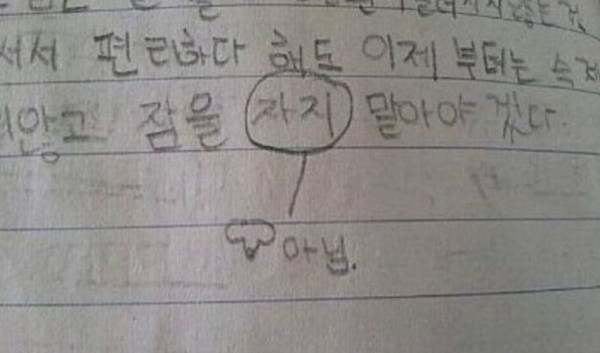 서서 편리하다 해도 이제 부터는 숙제
않고 잠을 자지 말아야 겠다.
아님.